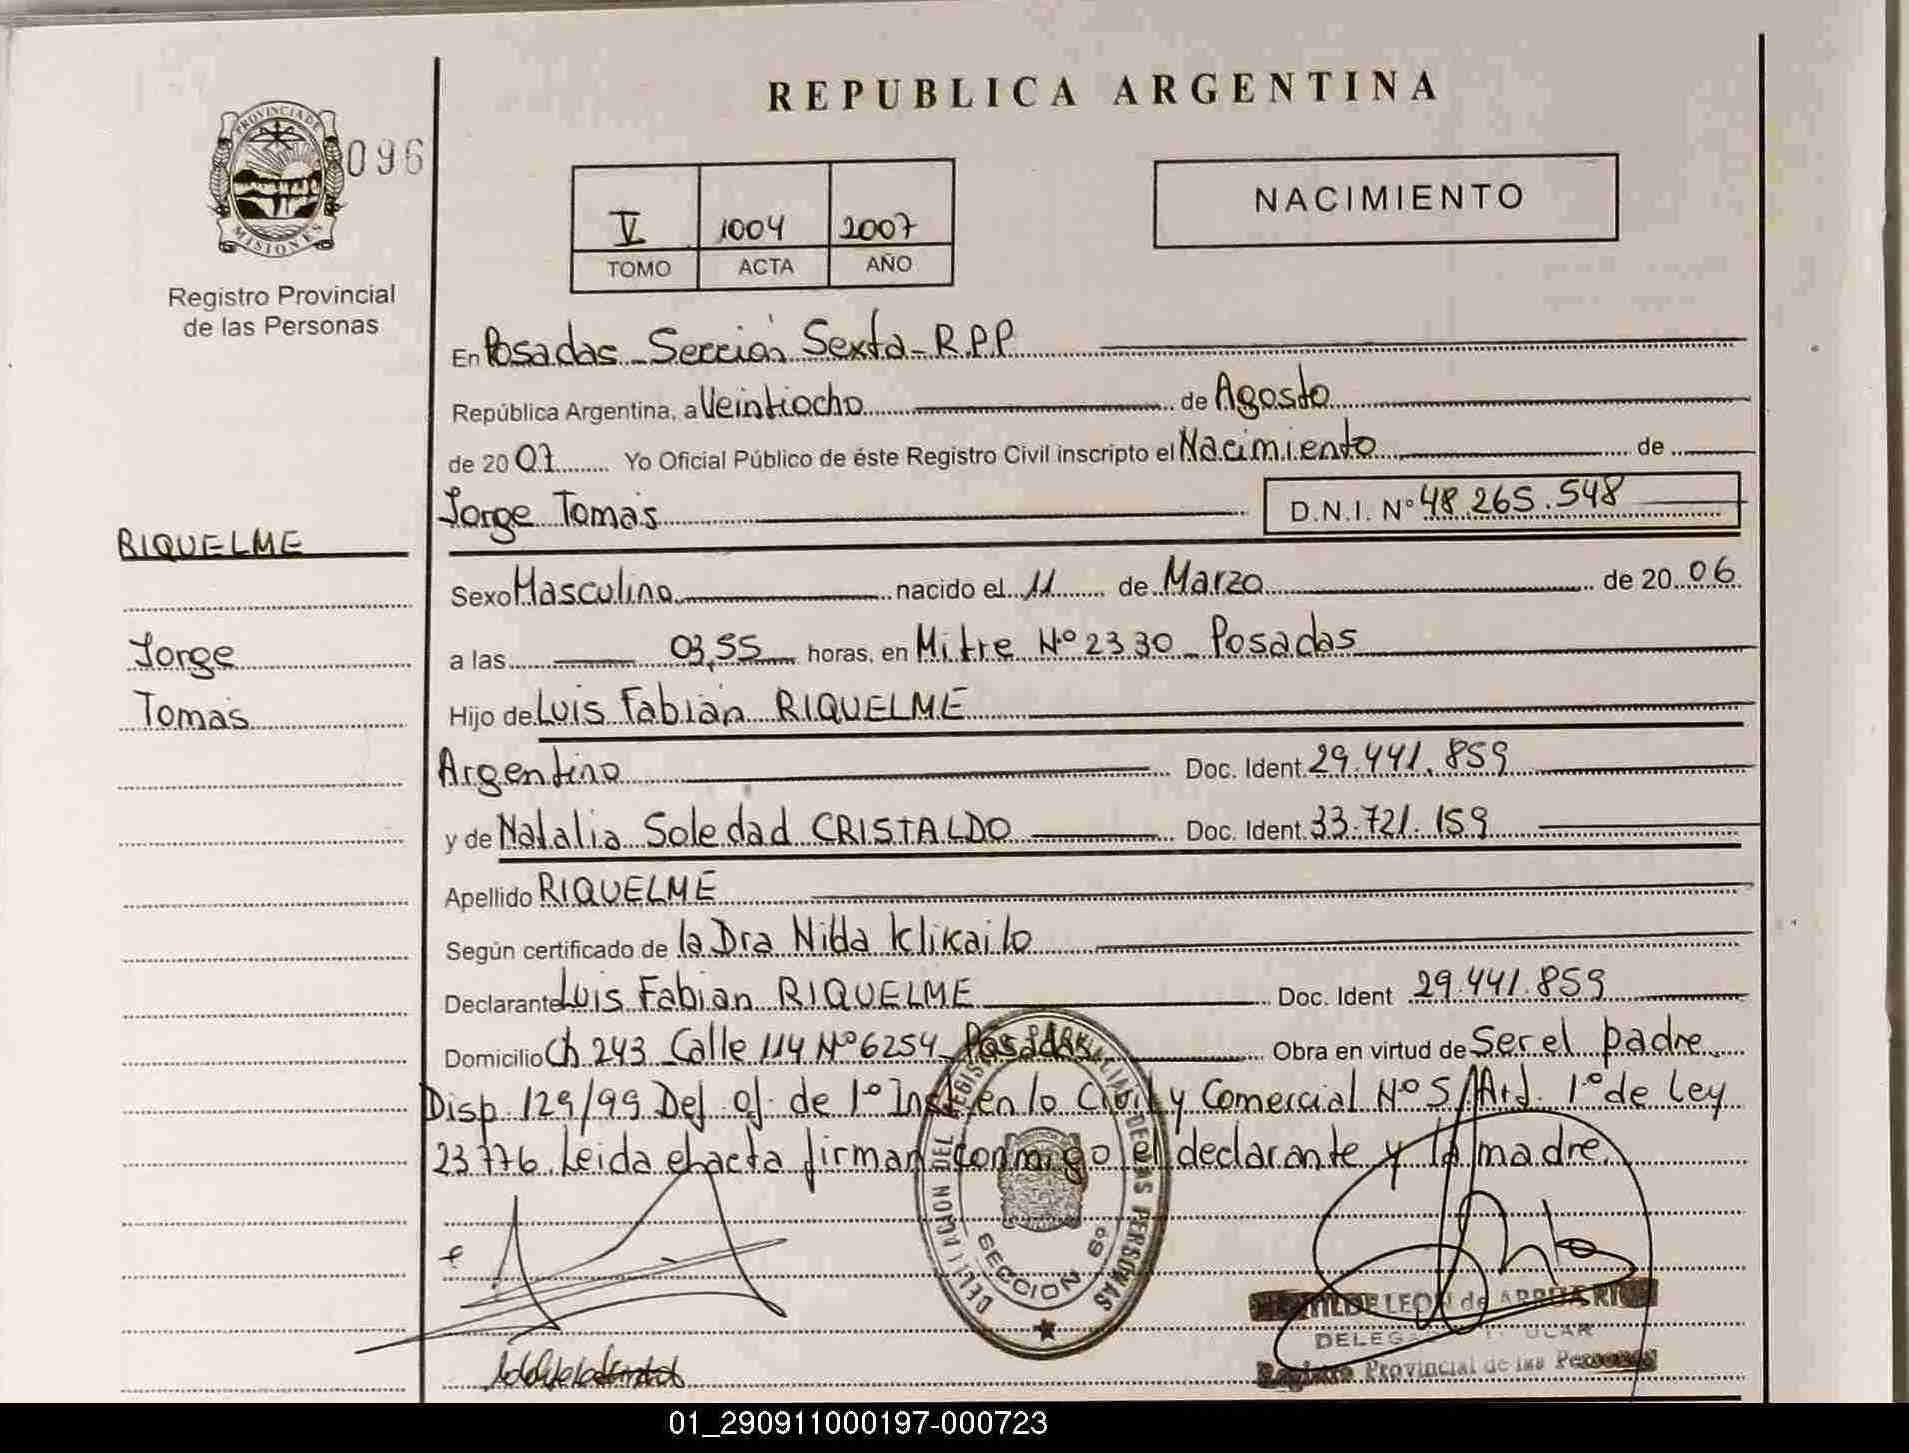 REPUBLICA ARGENTINA
PROVINCIA DE
MISIONES
096
Registro Provincial
de las Personas
V 1004 2007
TOMO ACTA AÑO
NACIMIENTO
En Posadas - Sección Sexta - R.P.P
República Argentina, a Veintiocho de Agosto
de 20 07 Yo Oficial Público de éste Registro Civil inscripto el Nacimiento de
Jorge Tomás D.N.I. Nº 48.265.548
RIQUELME
Jorge
Tomás
Sexo Masculino nacido el 11 de Marzo de 20 06
a las 03,55 horas, en Mitre Nº 2330 - Posadas
Hijo de Luis Fabián RIQUELME
Argentino Doc. Ident. 29.441.859
y de Natalia Soledad CRISTALDO Doc. Ident. 33.721.159
Apellido RIQUELME
Según certificado de la Dra Nilda Klikailo
Declarante Luis Fabian RIQUELME Doc. Ident 29.441.859
Domicilio Ch 243 Calle 114 Nº 6254 - Posadas Obra en virtud de Ser el padre
Disp 129/99 Def. Of. de 1º Inst en lo Civil y Comercial Nº 5/Art. 1º de Ley
23776 Leida el acta firman conmigo el declarante y la madre
DELEGACION DEL REGISTRO PROVINCIAL DE LAS PERSONAS
SECCION 6º
LEON de ARRUA
Registro Provincial de las Personas
01_290911000197-000723